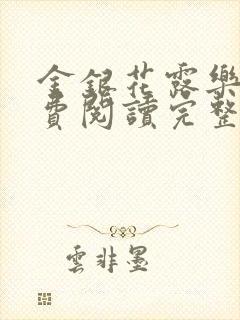 金銀花露樂
費閱讀完整
雲非墨